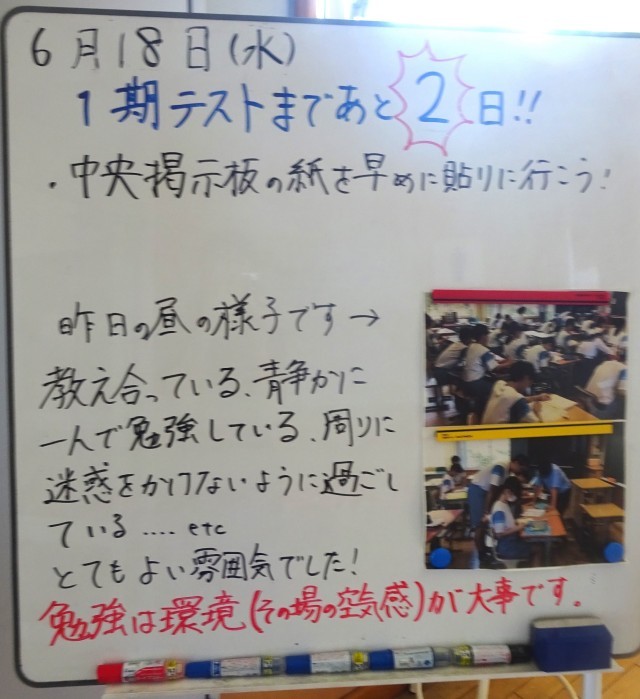 6月18日(水)
1期テストまであと2日!!
・中央掲示板の紙を早めに貼りに行こう!
昨日の昼の様子です→
教え合っている、静かに
一人で勉強している、周りに
迷惑をかけないように過ごし
ている....etc
とてもよい雰囲気でした!
勉強は環境(その場の空気感)が大事です。